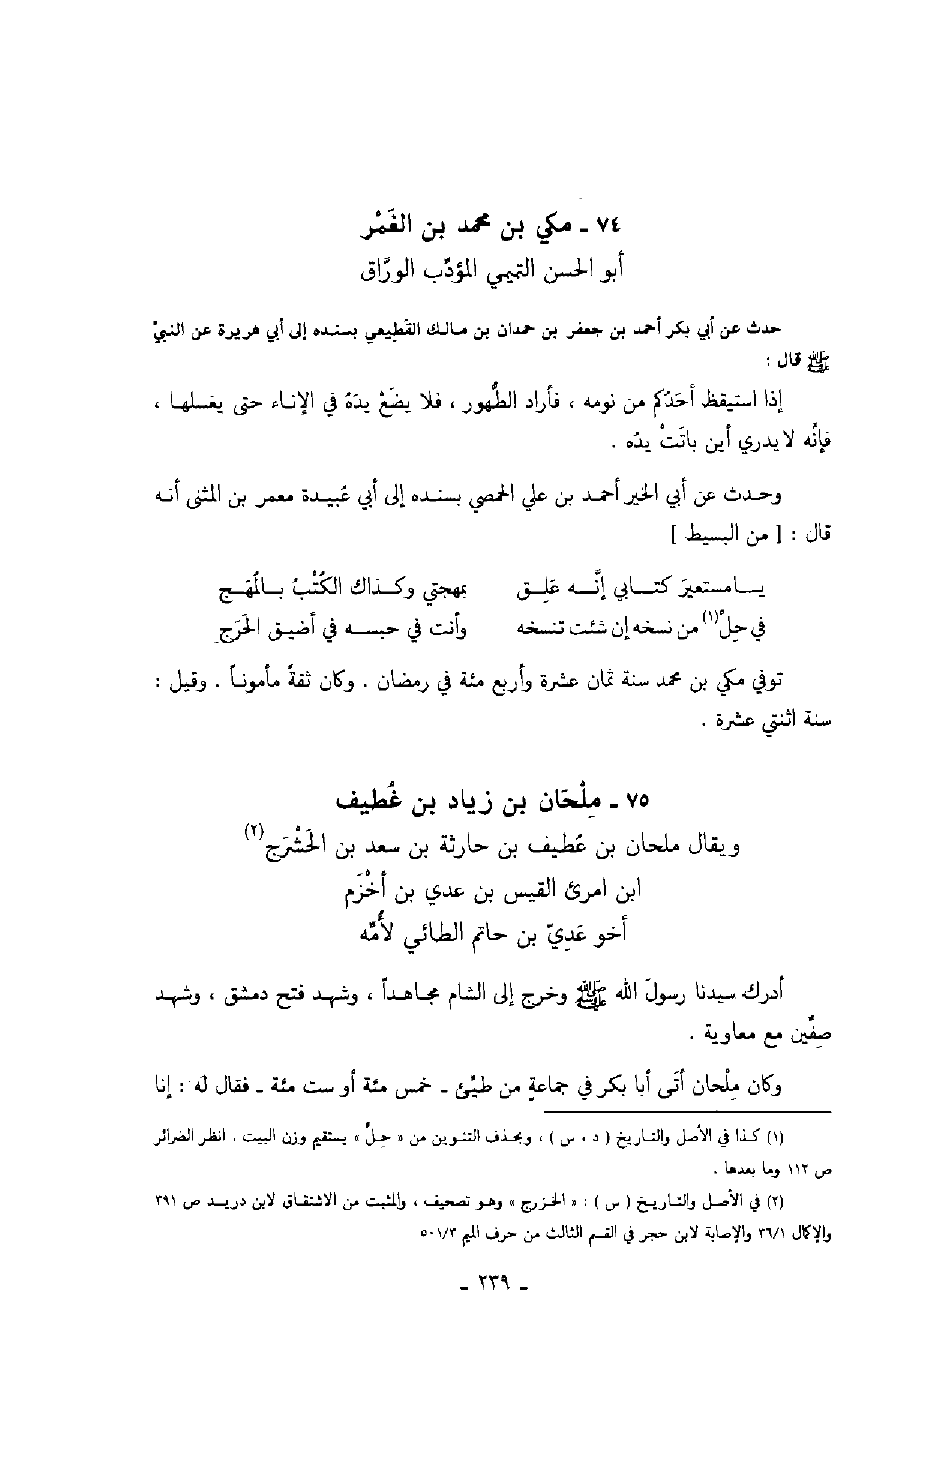 ٧٤ ـ مكي بن محمد بن الغَمْر
أبو الحسن التميمي المؤدِّب الورَّاق
حدث عن أبي بكر أحمد بن جعفر بن حمدان بن مالك القَطيعي بسنده إلى أبي هريرة عن النبيّ
ﷺ قال :
إذا استيقظ أحَدُكم من نومه ، فأراد الطُّهور ، فلا يضَعْ يدَهُ في الإناء حتى يغسلها ،
فإنَّه لا يدري أين باتَتْ يدُه .
وحدث عن أبي الخير أحمد بن علي الحمصي بسنده إلى أبي عُبيدة معمر بن المثنى أنه
قال : [ من البسيط ]
يا مستعيرَ كتابي إنَّه عَلِق بمهجتي وكذاك الكُتْبُ بالمُهَج
في حِلٍّ(١) من نسخه إن شئت تنسخه وأنت في حبسه في أضيق الحَرَج
توفي مكي بن محمد سنة ثمان عشرة وأربع مئة في رمضان . وكان ثقةً مأموناً . وقيل :
سنة اثنتي عشرة .
٧٥ ـ مِلْحَان بن زياد بن غُطيف
ويقال ملحان بن غُطيف بن حارثة بن سعد بن الحَشْرَج(٢)
ابن امرئ القيس بن عدي بن أَخْزَم
أخو عَدِيّ بن حاتم الطائي لأُمِّه
أدرك سيدنا رسولَ الله ﷺ وخرج إلى الشام مجاهداً ، وشهد فتح دمشق ، وشهد
صِفِّين مع معاوية .
وكان مِلْحان أتَى أبا بكر في جماعةٍ من طيّئ ـ خمس مئة أو ست مئة ـ فقال له : إنا
(١) كذا في الأصل والتاريخ ( د ، س ) ، وبحذف التنوين من « حِلٍّ » يستقيم وزن البيت . انظر الضرائر
ص ١١٢ وما بعدها .
(٢) في الأصل والتاريخ ( س ) : « الخزرج » وهو تصحيف ، والمثبت من الاشتقاق لابن دريد ص ٣٩١
والإكمال ٣٦/١ والإصابة لابن حجر في القسم الثالث من حرف الميم ٥٠١/٣
ـ ٢٣٩ ـ